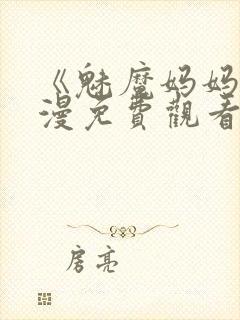 《魅魔妈妈
漫免費觀看
房亮